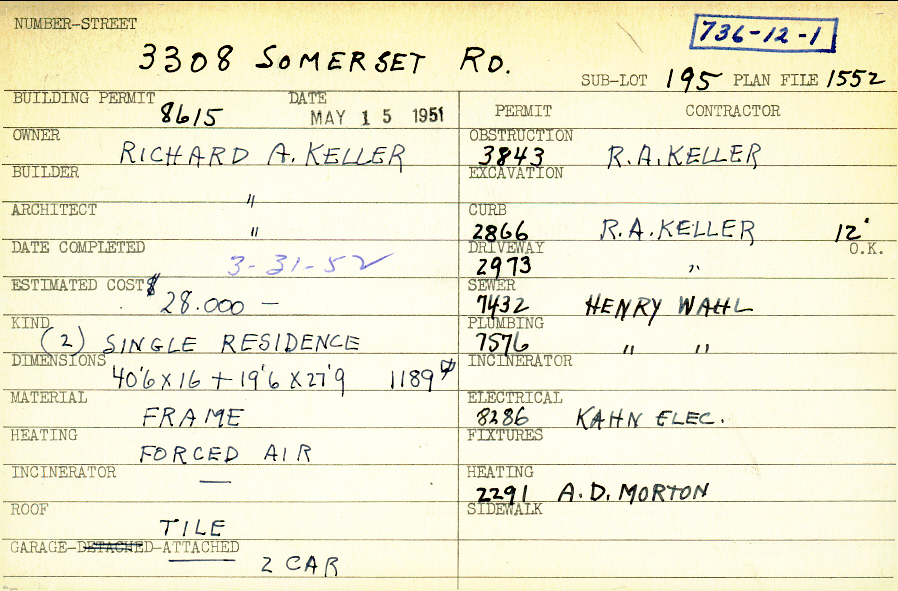 NUMBER-STREET
736-12-1
3308 SOMERSET RD.
SUB-LOT 195 PLAN FILE 1552
BUILDING PERMIT 8615 DATE MAY 15 1951
OWNER RICHARD A. KELLER
BUILDER "
ARCHITECT "
DATE COMPLETED 3-31-52 ✓
ESTIMATED COST $ 28.000 —
KIND (2) SINGLE RESIDENCE
DIMENSIONS 40'6 X 16 + 19'6 X 27'9 1189
MATERIAL FRAME
HEATING FORCED AIR
INCINERATOR —
ROOF TILE
GARAGE-DETACHED-ATTACHED 2 CAR
PERMIT CONTRACTOR
OBSTRUCTION 3843 R.A. KELLER
EXCAVATION
CURB 2866 R.A. KELLER 12' O.K.
DRIVEWAY 2973 "
SEWER 7432 HENRY WAHL
PLUMBING 7576 " "
INCINERATOR
ELECTRICAL 8286 KAHN ELEC.
FIXTURES
HEATING 2291 A.D. MORTON
SIDEWALK